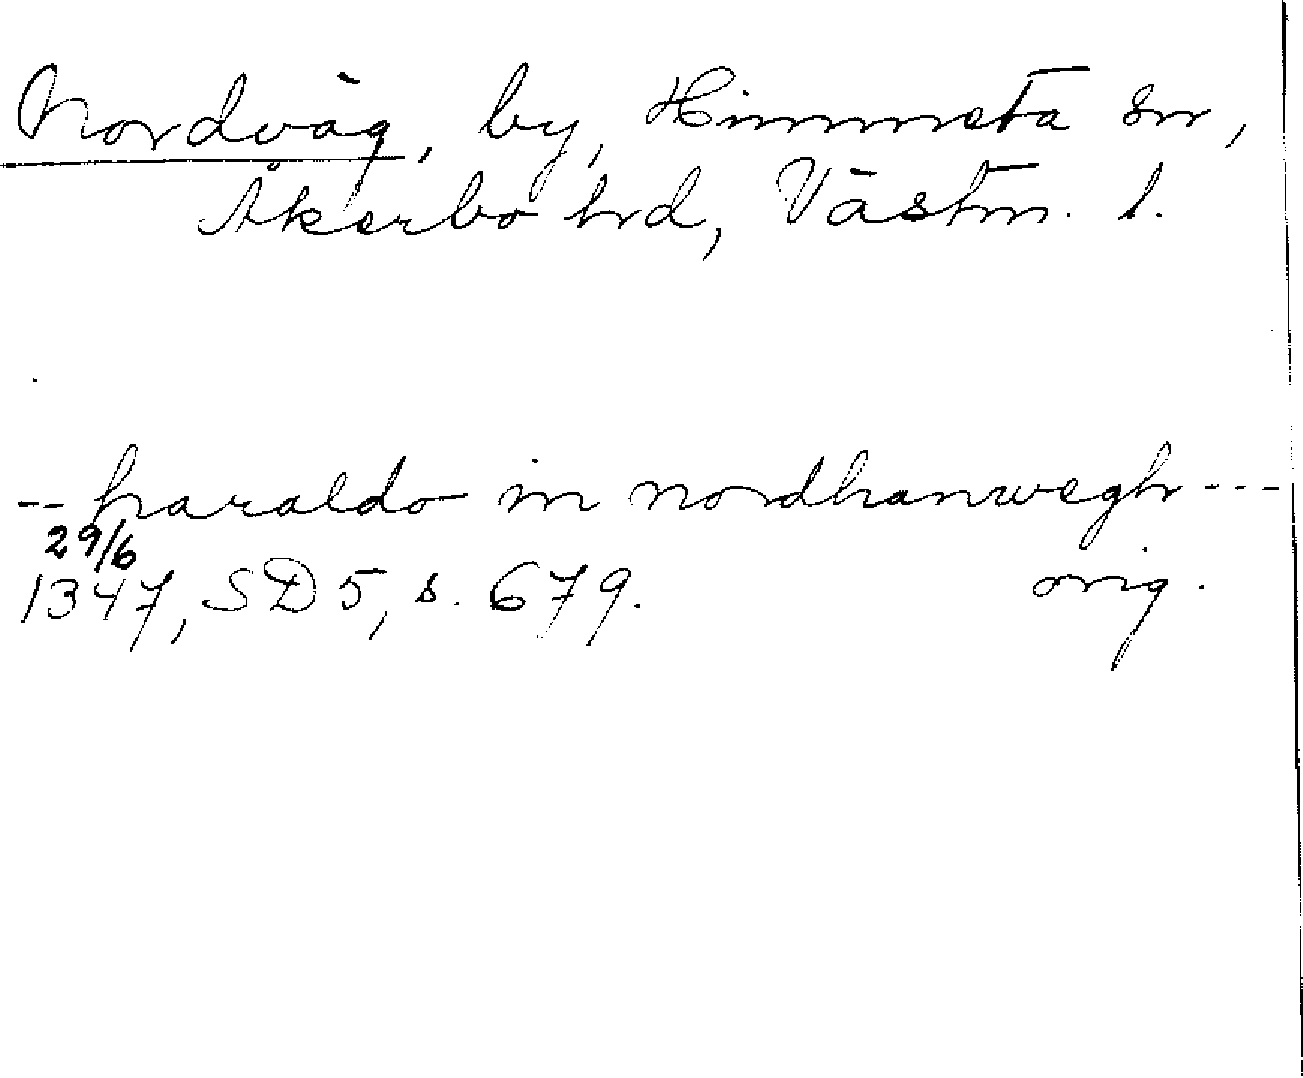 Nordväg, by, Himmeta sn,
Åkerbo hrd, Västm. l.
-- haraldo in nordhanwegh ---
29/6
1347, SD 5, s. 679. orig.